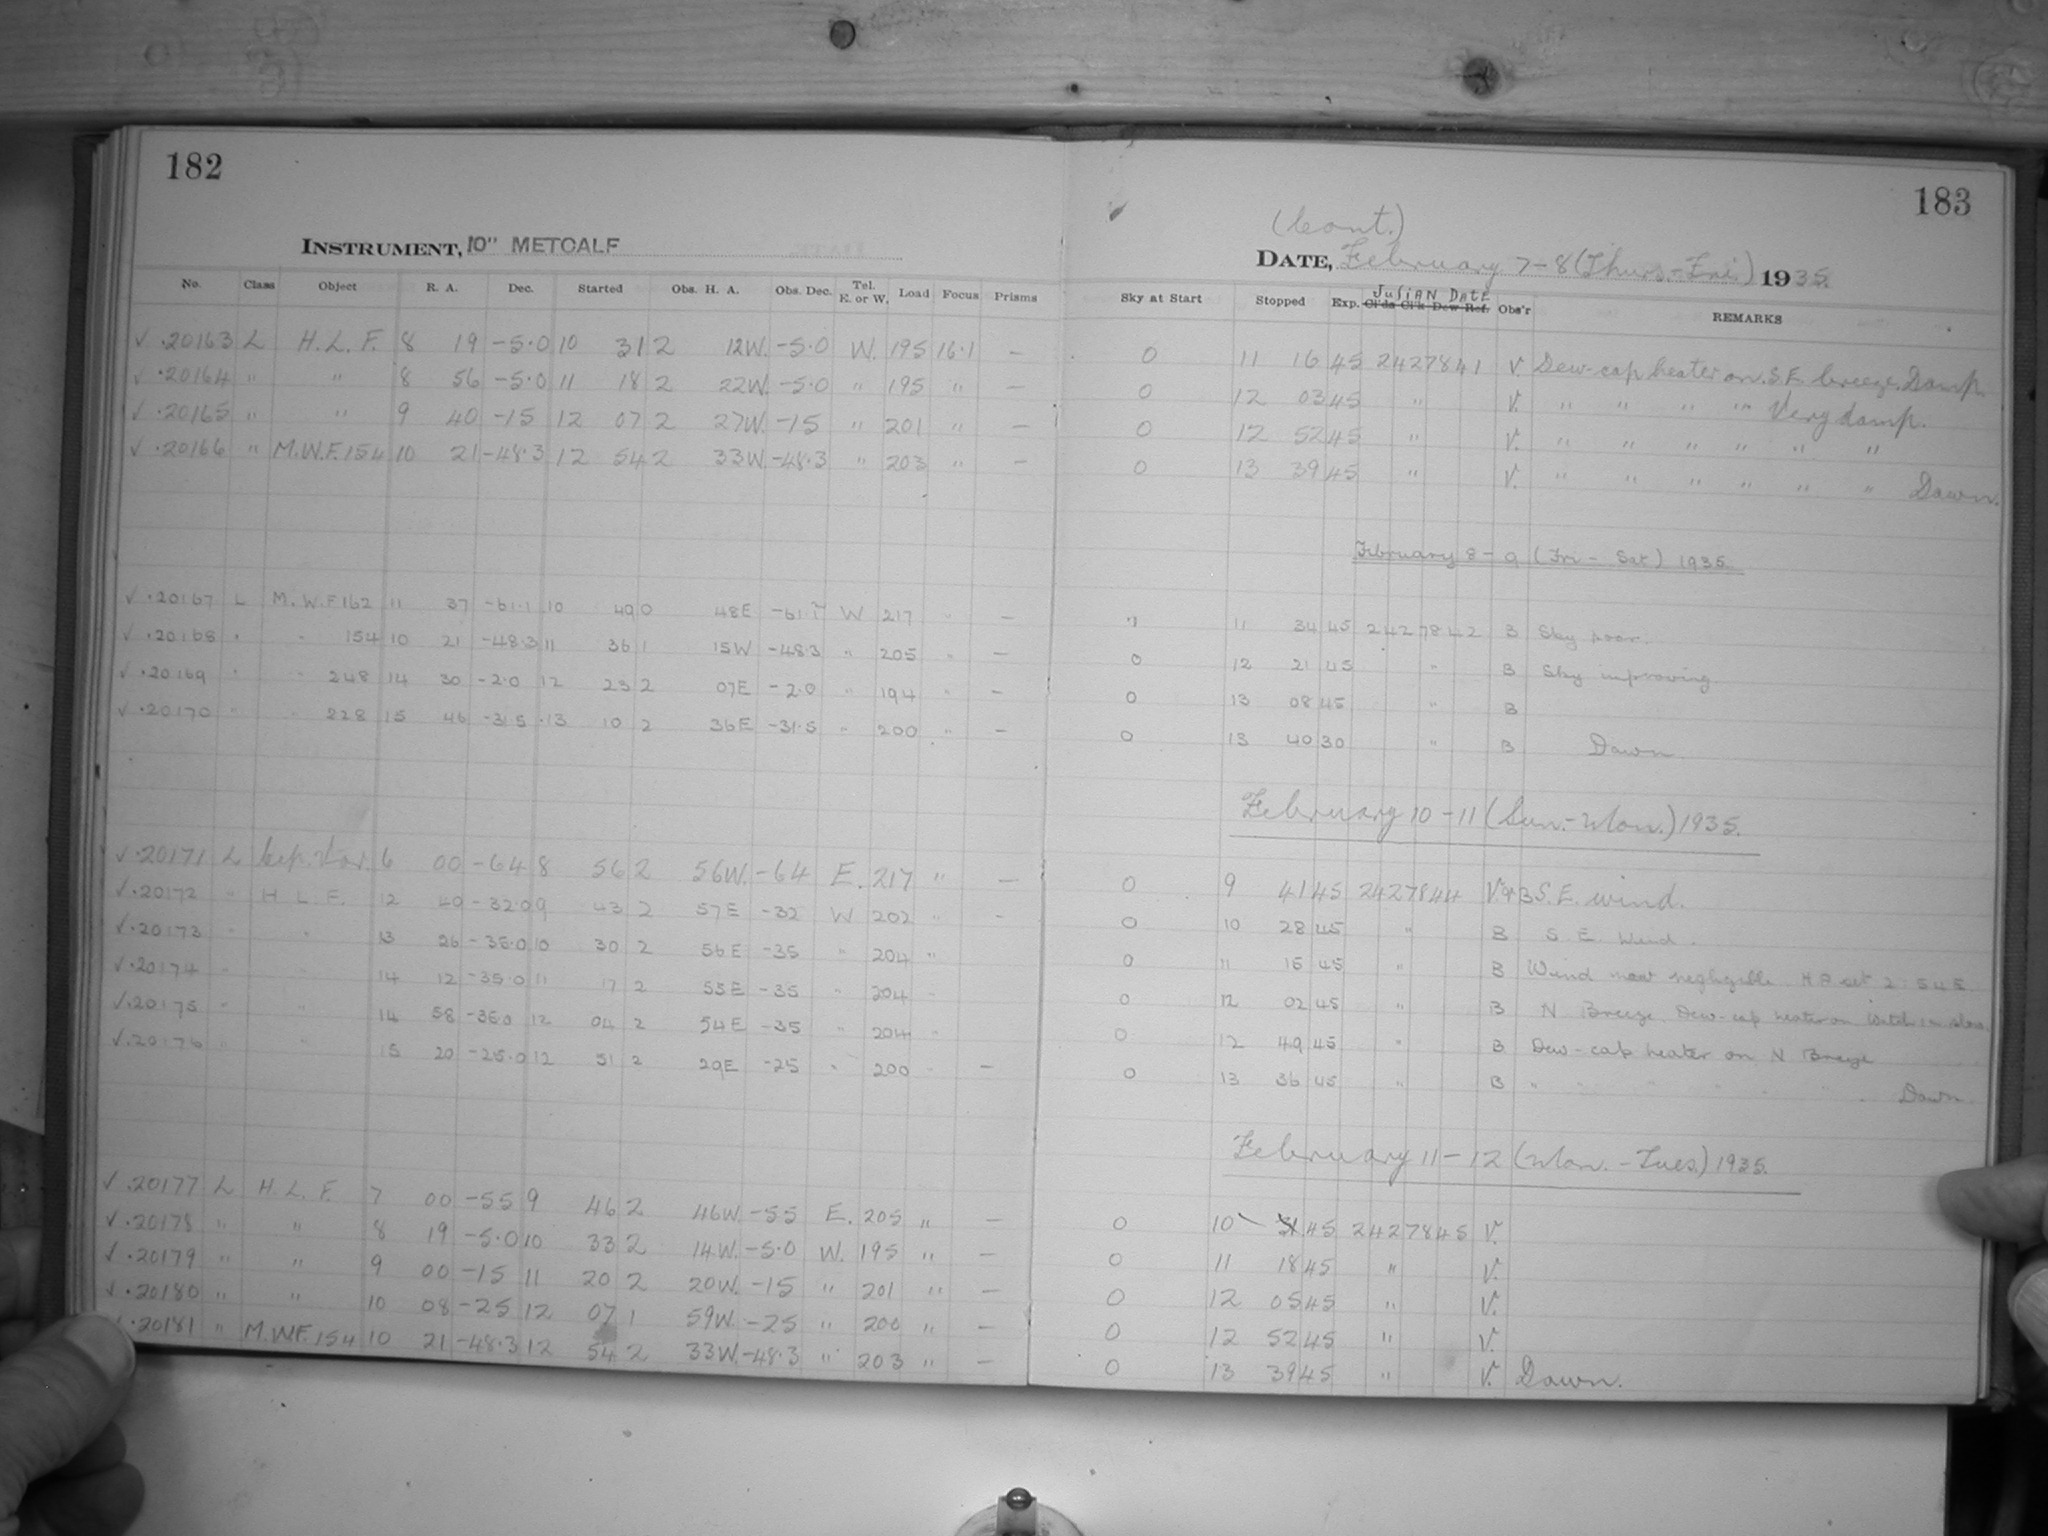 182
INSTRUMENT, 10" METCALF
No. Class Object R. A. Dec. Started Obs. H. A. Obs. Dec. Tel. E. or W. Load Focus Prisms
√ .20163 L H. L. F. 8 19 -5.0 10 31 2 12W. -5.0 W. 195 16.1 —
√ .20164 " " 8 56 -5.0 11 18 2 22W. -5.0 " 195 " —
√ .20165 " " 9 40 -15 12 07 2 27W. -15 " 201 " —
√ .20166 " M.W.F. 154 10 21 -48.3 12 54 2 33W. -48.3 " 203 " —
√ .20167 L M.W.F 162 11 37 -61.1 10 49 0 48E -61.1 W 217 " —
√ .20168 " " 154 10 21 -48.3 11 36 1 15W -48.3 " 205 " —
√ .20169 " " 248 14 30 -2.0 12 23 2 07E -2.0 " 194 " —
√ .20170 " " 228 15 46 -31.5 13 10 2 36E -31.5 " 200 " —
√ .20171 L Var. 6 00 -64 8 56 2 56W. -64 E. 217 " —
√ .20172 " H L F. 12 40 -32.0 9 43 2 57E -32 W 202 " —
√ .20173 " " 13 26 -35.0 10 30 2 56E -35 " 204 "
√ .20174 " " 14 12 -35.0 11 17 2 55E -35 " 204 "
√ .20175 " " 14 58 -35.0 12 04 2 54E -35 " 204 "
√ .20176 " " 15 20 -25.0 12 51 2 29E -25 " 200 " —
√ .20177 L H. L. F. 7 00 -55 9 46 2 46W. -55 E. 205 " —
√ .20178 " " 8 19 -5.0 10 33 2 14W. -5.0 W. 195 " —
√ .20179 " " 9 00 -15 11 20 2 20W. -15 " 201 " —
√ .20180 " " 10 08 -25 12 07 1 59W. -25 " 200 " —
.20181 " M.W.F. 154 10 21 -48.3 12 54 2 33W. -48.3 " 203 " —
183
(Cont.)
DATE, February 7-8 (Thurs.-Fri.) 1935.
JULIAN DATE
Sky at Start Stopped Exp. Cl'ds Cl'k Dew Ref. Obs'r REMARKS
0 11 16 45 2427841 V. Dew-cap heater on. S.E. breeze. Damp.
0 12 03 45 " V. " " " " Very damp.
0 12 52 45 " V. " " " " " "
0 13 39 45 " V. " " " " " " Dawn.
February 8-9 (Fri - Sat) 1935
11 34 45 2427842 B Sky poor.
0 12 21 45 " B Sky improving.
0 13 08 45 " B
0 13 40 30 " B Dawn
February 10-11 (Sun.-Mon.) 1935.
0 9 41 45 2427844 V.&B S.E. wind.
0 10 28 45 " B S. E. Wind.
0 11 15 45 " B Wind most negligible. H A set 2 54 E.
0 12 02 45 " B N Breeze. Dew-cap heater on.
0 12 49 45 " B Dew-cap heater on N Breeze
0 13 36 45 " B " " " " " Dawn.
February 11-12 (Mon.-Tues.) 1935.
0 10 31 45 2427845 V.
0 11 18 45 " V.
0 12 05 45 " V.
0 12 52 45 " V.
0 13 39 45 " V. Dawn.